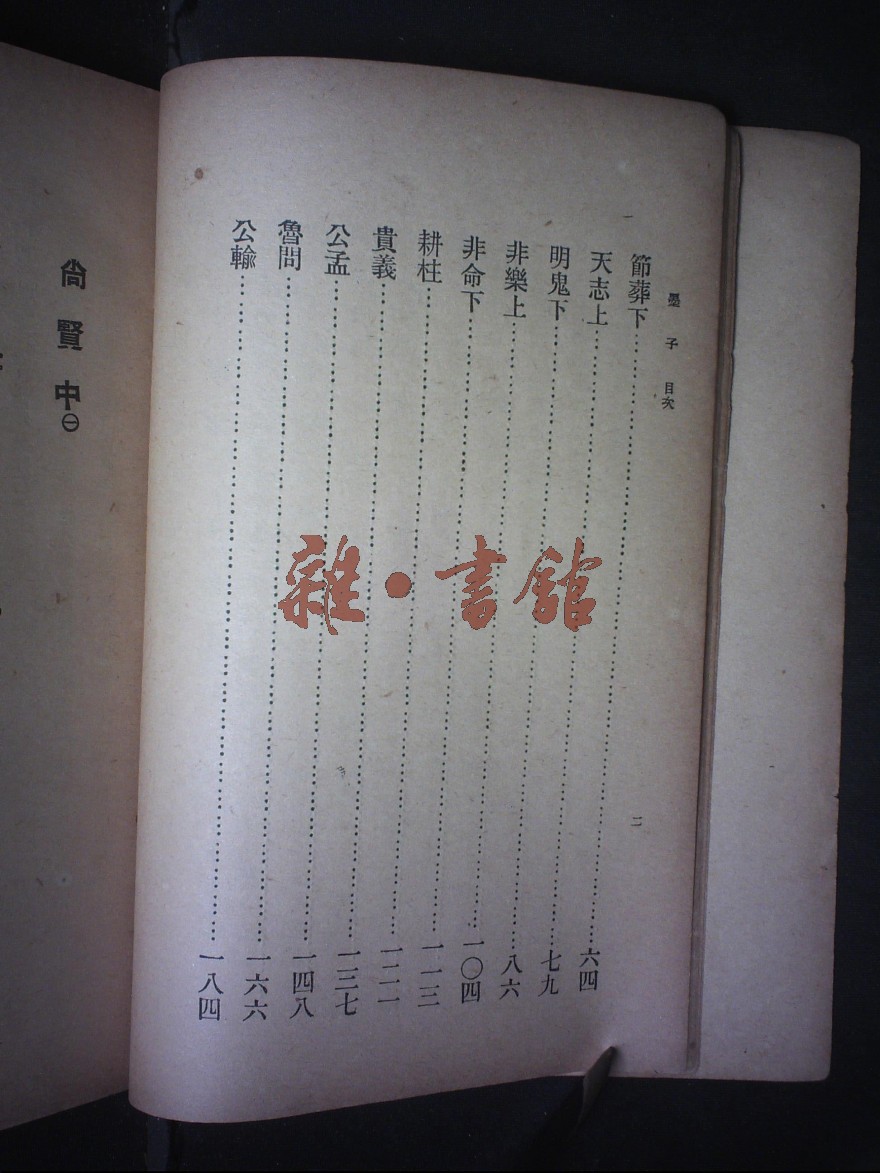 墨子 目次
二
節葬下……六四
天志上……七九
明鬼下……八六
非樂上……一〇四
非命下……一一三
耕柱……一二一
貴義……一三七
公孟……一四八
魯問……一六六
公輸……一八四
尙賢中㊀
雜·書館